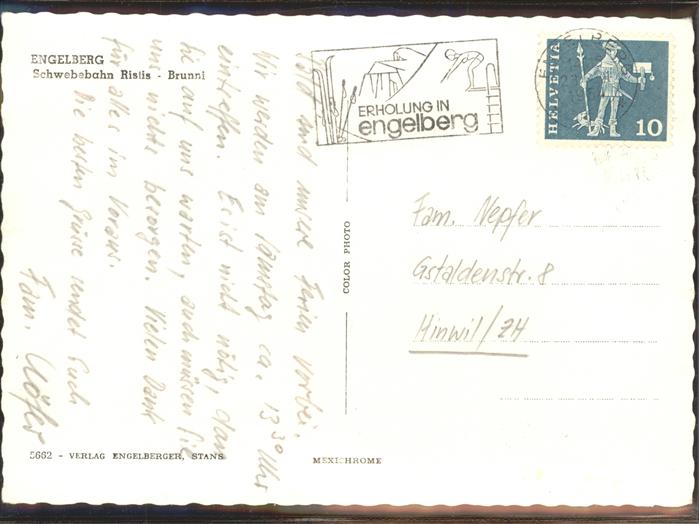 ENGELBERG
Schwebebahn Ristis - Brunni
ERHOLUNG IN
engelberg
HELVETIA
10
sind unsere Ferien vorbei.
Wir werden am Samstag ca. 13 30 Uhr
eintreffen. Es ist nicht nötig, dass
Sie auf uns warten, auch müssen Sie
uns nichts besorgen. Vielen Dank
für alles im Voraus.
Die besten Grüsse sendet Euch
Fam.
COLOR PHOTO
Fam. Nepfer
Gstaldenstr. 8
Hinwil/ZH
5662 - VERLAG ENGELBERGER, STANS
MEXICHROME